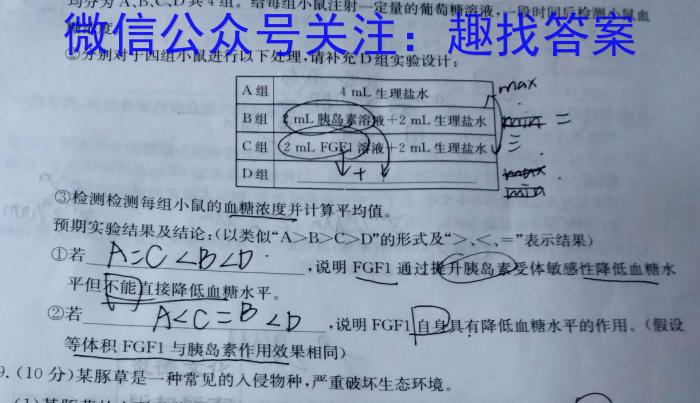 均分为A、B、C、D共4组。给每组小鼠注射一定量的葡萄糖溶液,一段时间后检测小鼠血
微信公众号关注:趣找答案
②分别对于四组小鼠进行以下处理,请补充D组实验设计:
A组 4 mL 生理盐水 max
B组 2 mL 胰岛素溶液+2 mL 生理盐水 min =
C组 2 mL FGF1 溶液+2 mL 生理盐水 =
D组 + max
min
③检测检测每组小鼠的血糖浓度并计算平均值。
预期实验结果及结论:(以类似“A>B>C>D”的形式及“>、<、=”表示结果)
①若 A=C<B<D ,说明 FGF1 通过提升胰岛素受体敏感性降低血糖水
平但不能直接降低血糖水平。
②若 A<C=B<D ,说明 FGF1 自身具有降低血糖水平的作用。(假设
等体积 FGF1 与胰岛素作用效果相同)
9.(10分)某豚草是一种常见的入侵物种,严重破坏生态环境。